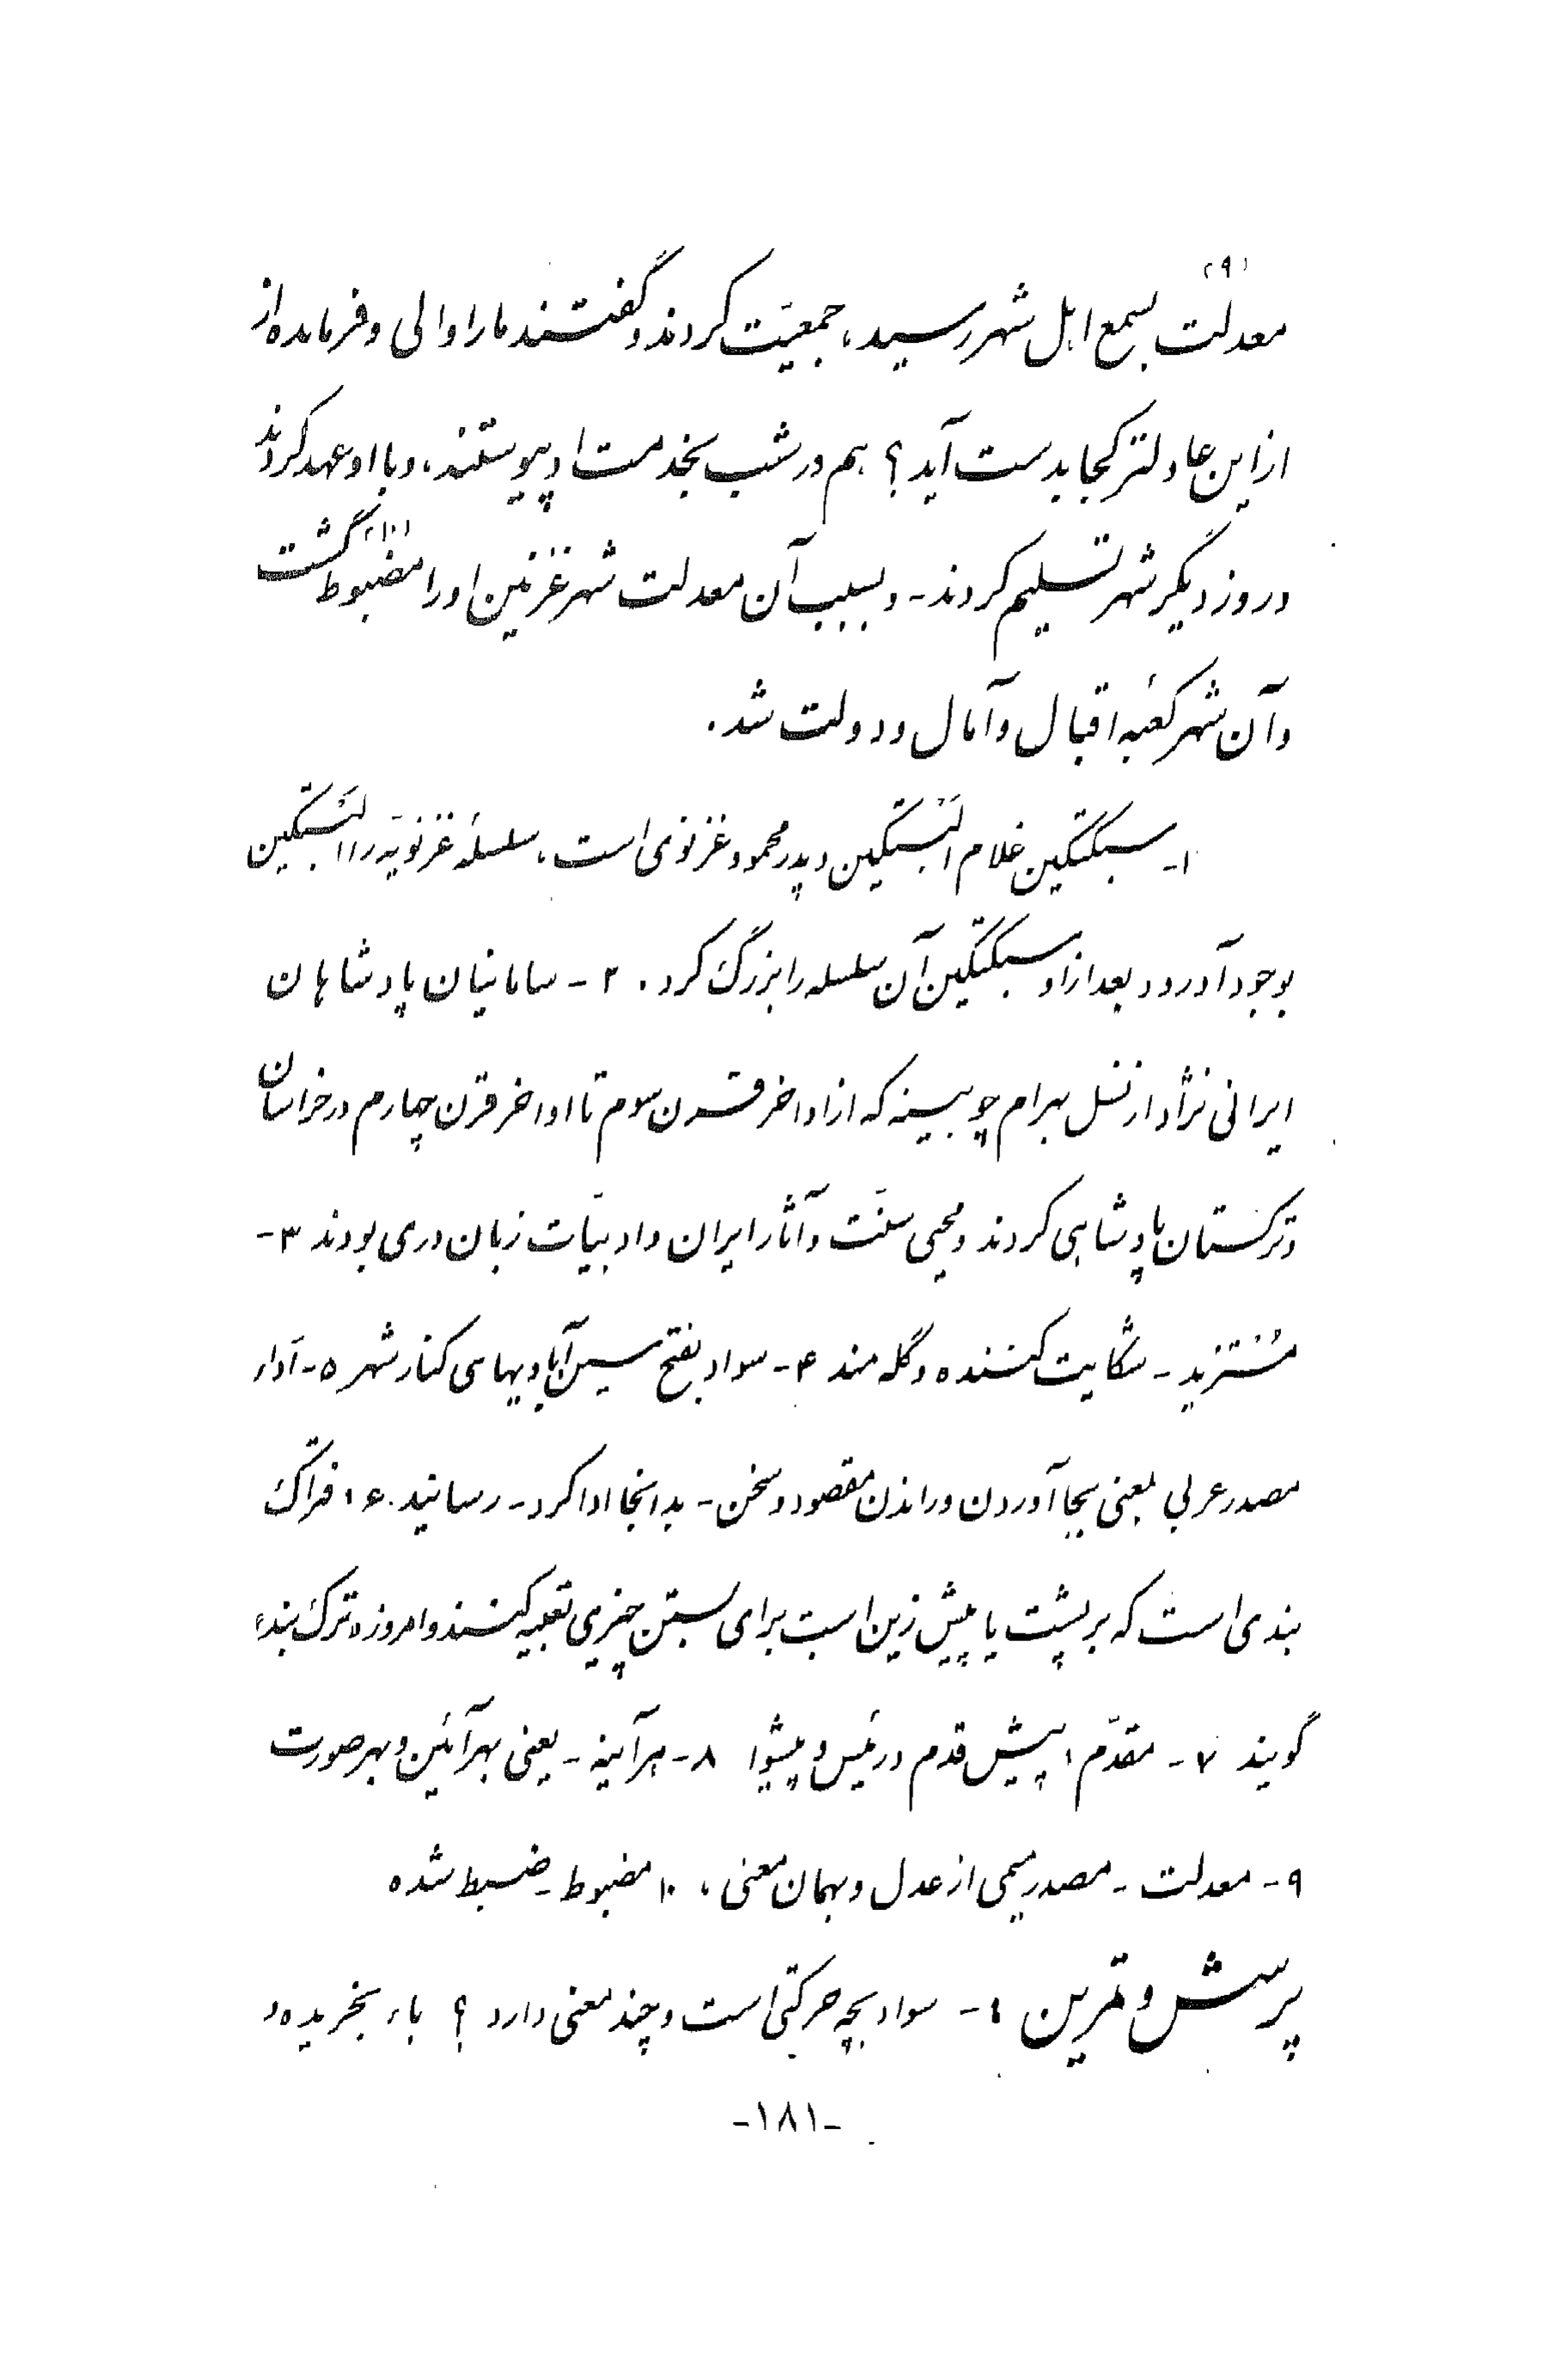 (۹)
معدلت بسمع اهل شهر رسید، جمعیّت کردند و گفتند ما را والی و فرمانده از
از این عادلتر کجا بدست آید؟ هم در شب بخدمت او پیوستند، و با او عهد کردند
(۱۰)
و روز دیگر شهر تسلیم کردند - و بسبب آن معدلت شهر غزنین او را مضبوط گشت
و آن شهر کعبه اقبال و آمال و دولت شد.
۱- سبکتکین غلام البتکین و پدر محمود غزنوی است، سلسلهٔ غزنویّه را البتکین
بوجود آورد و بعد از او سبکتکین آن سلسله را بزرگ کرد. ۲- سامانیان پادشاهان
ایرانی نژاد از نسل بهرام چوبینه که از اواخر قرن سوم تا اواخر قرن چهارم در خراسان
و ترکستان پادشاهی کردند و محیی سنّت و آثار ایران و ادبیّات زبان دری بودند ۳-
مُستزید - شکایت کننده و گله مند ۴- سواد بفتح سین آبادیهای کنار شهر ۵- اَداء
مصدر عربی بمعنی بجا آوردن و راندن مقصود و سخن - بدانجا ادا کرد - رسانید. ۶، فتراک
بندی است که بر پشت یا پیش زین اسب برای بستن چیزی تعبیه کنند و امروزه ترک بند،
گویند ۷- مقدّم، پیش قدم و رئیس و پیشوا ۸- هرآینه - یعنی بهر آئین و بهر صورت
۹- معدلت - مصدر میمی از عدل و بهمان معنی، ۱۰ مضبوط - ضبط شده
پرسش و تمرین ۱- سواد بچه حرکتی است و چند معنی دارد؟ باء بخریده و
-۱۸۱-